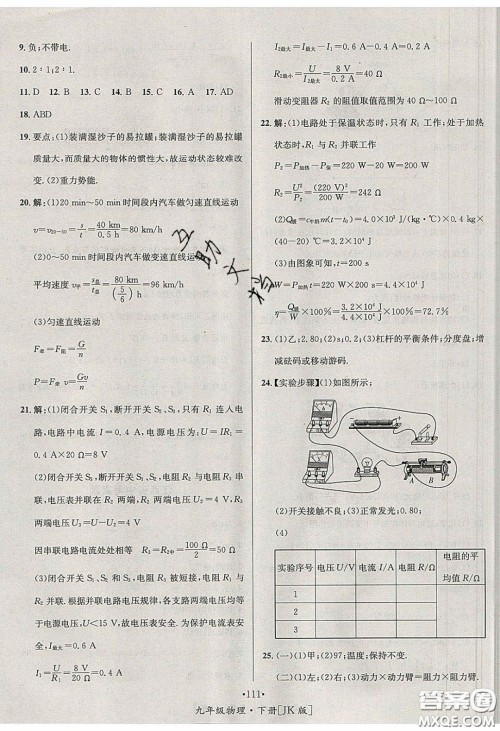 9. 负;不带电.
10. 2∶1;2∶1.
11. D 12. B 13. B 14. C 15. C 16. A 17. A
18. ABD
19. 要点:(1)装满湿沙子的易拉罐;装满湿沙子的易拉罐
质量大,而质量大的物体的惯性大,故运动状态较难改
变. (2)重力势能.
20. 解:(1)20 min～50 min 时间段内汽车做匀速直线运动
(2)0～50 min 时间段内汽车做变速直线运动
(3)匀速直线运动
21. 解:(1)闭合开关 S₁,断开开关 S₂、S₃,只有 R₁ 连入电
路,电路中电流 I=0.4 A,电源电压为:U=IR₁=
(2)闭合开关 S₃,断开开关 S₁、S₂,电阻 R₁ 与 R₂ 串
联,电压表并联在 R₂ 两端,R₂ 两端电压为 4 V,R₁ 两
端电压 U₁=U-U₂=8 V-4 V=4 V
因串联电路电流处处相等 R₂=R₁=100 Ω/2=50 Ω
(3)闭合开关 S₁、S₂、S₃,电阻 R₂ 被短接,电阻 R₁ 与
R₃ 并联. 根据并联电路电压规律,各支路电压均等于
U<15 V,故电压表安全. 为保证电流表安全,故干路
最大电流为 I最大=0.6 A
I₁=U/R₁=8 V/20 Ω=0.4 A
I₂最大=I最大-I₁=0.6 A-0.4 A=0.2 A
R₂最小=U/I₂最大=8 V/0.2 A=40 Ω
滑动变阻器 R₂ 的阻值取值范围为 40 Ω～100 Ω
22. 解:(1)电路处于保温状态时,只有 R₁ 工作;处于加热
状态时,R₁ 与 R₂ 并联工作
P₂=P加热-P保温=220 W-20 W=200 W
R₂=U²/P₂=(220 V)²/200 W=242 Ω
(2)Q吸=c牛奶m(t-t₀)=4.0×10³ J/(kg·℃)×0.4 kg×
(40-20)℃=3.2×10⁴ J
(3)由图象可知,t=200 s
W=P加热t=220 W×200 s=4.4×10⁴ J
η=Q吸/W×100%=3.2×10⁴ J/4.4×10⁴ J×100%=72.7%
23. (1)乙;2.80;(2)s;0.2;(3)杠杆的平衡条件;分度盘;增
减砝码或移动游码.
24. 【实验步骤】(1)如图所示;
A B
(2)开关接触不良;(3)正常发光;0.80;
(4)
实验序号 电压 U/V 电流 I/A 电阻 R/Ω 电阻的平均值 R/Ω
1
2
3
25. (一)(1)甲;(2)97;温度;保持不变.
(二)(1)左;(2)动力×动力臂=阻力×阻力臂;
·111·
九年级物理·下册[JK版]